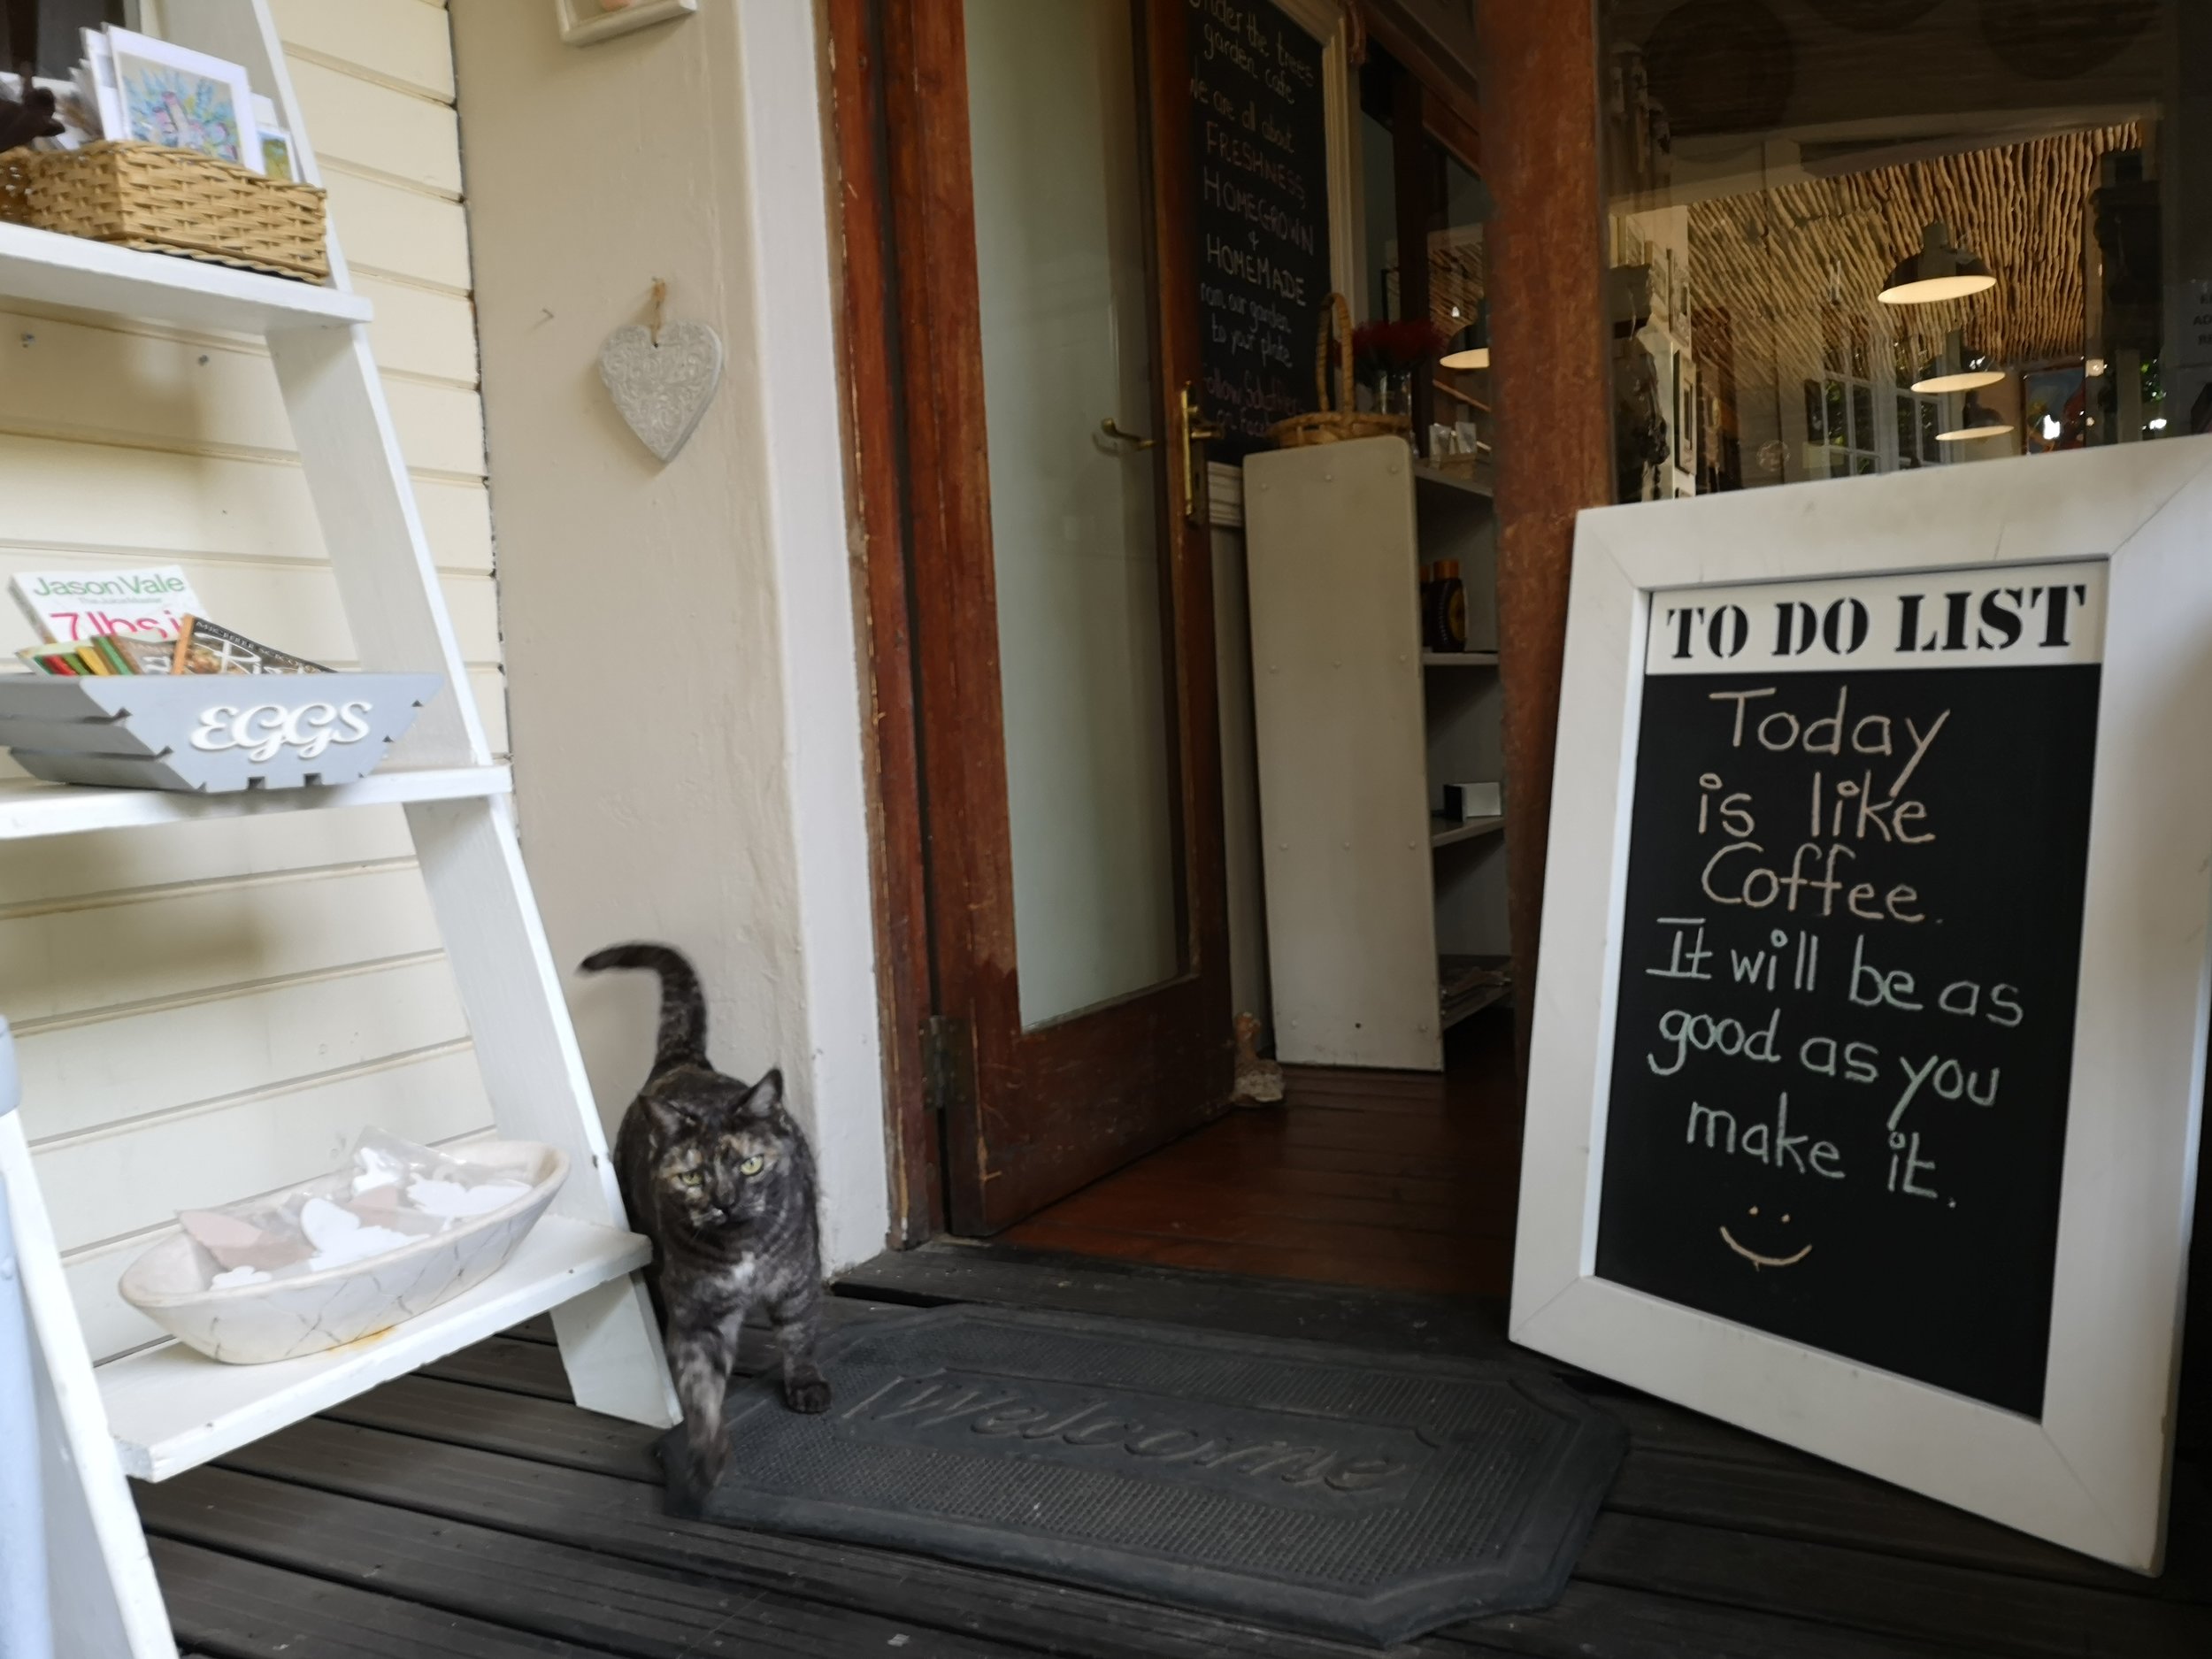 Under the trees
garden cafe
We are all about
FRESHNESS
HOMEGROWN
+
HOMEMADE
from our garden
to your plate
Jason Vale
7lbs in
EGGS
TO DO LIST
Today
is like
Coffee.
It will be as
good as you
make it.
Welcome